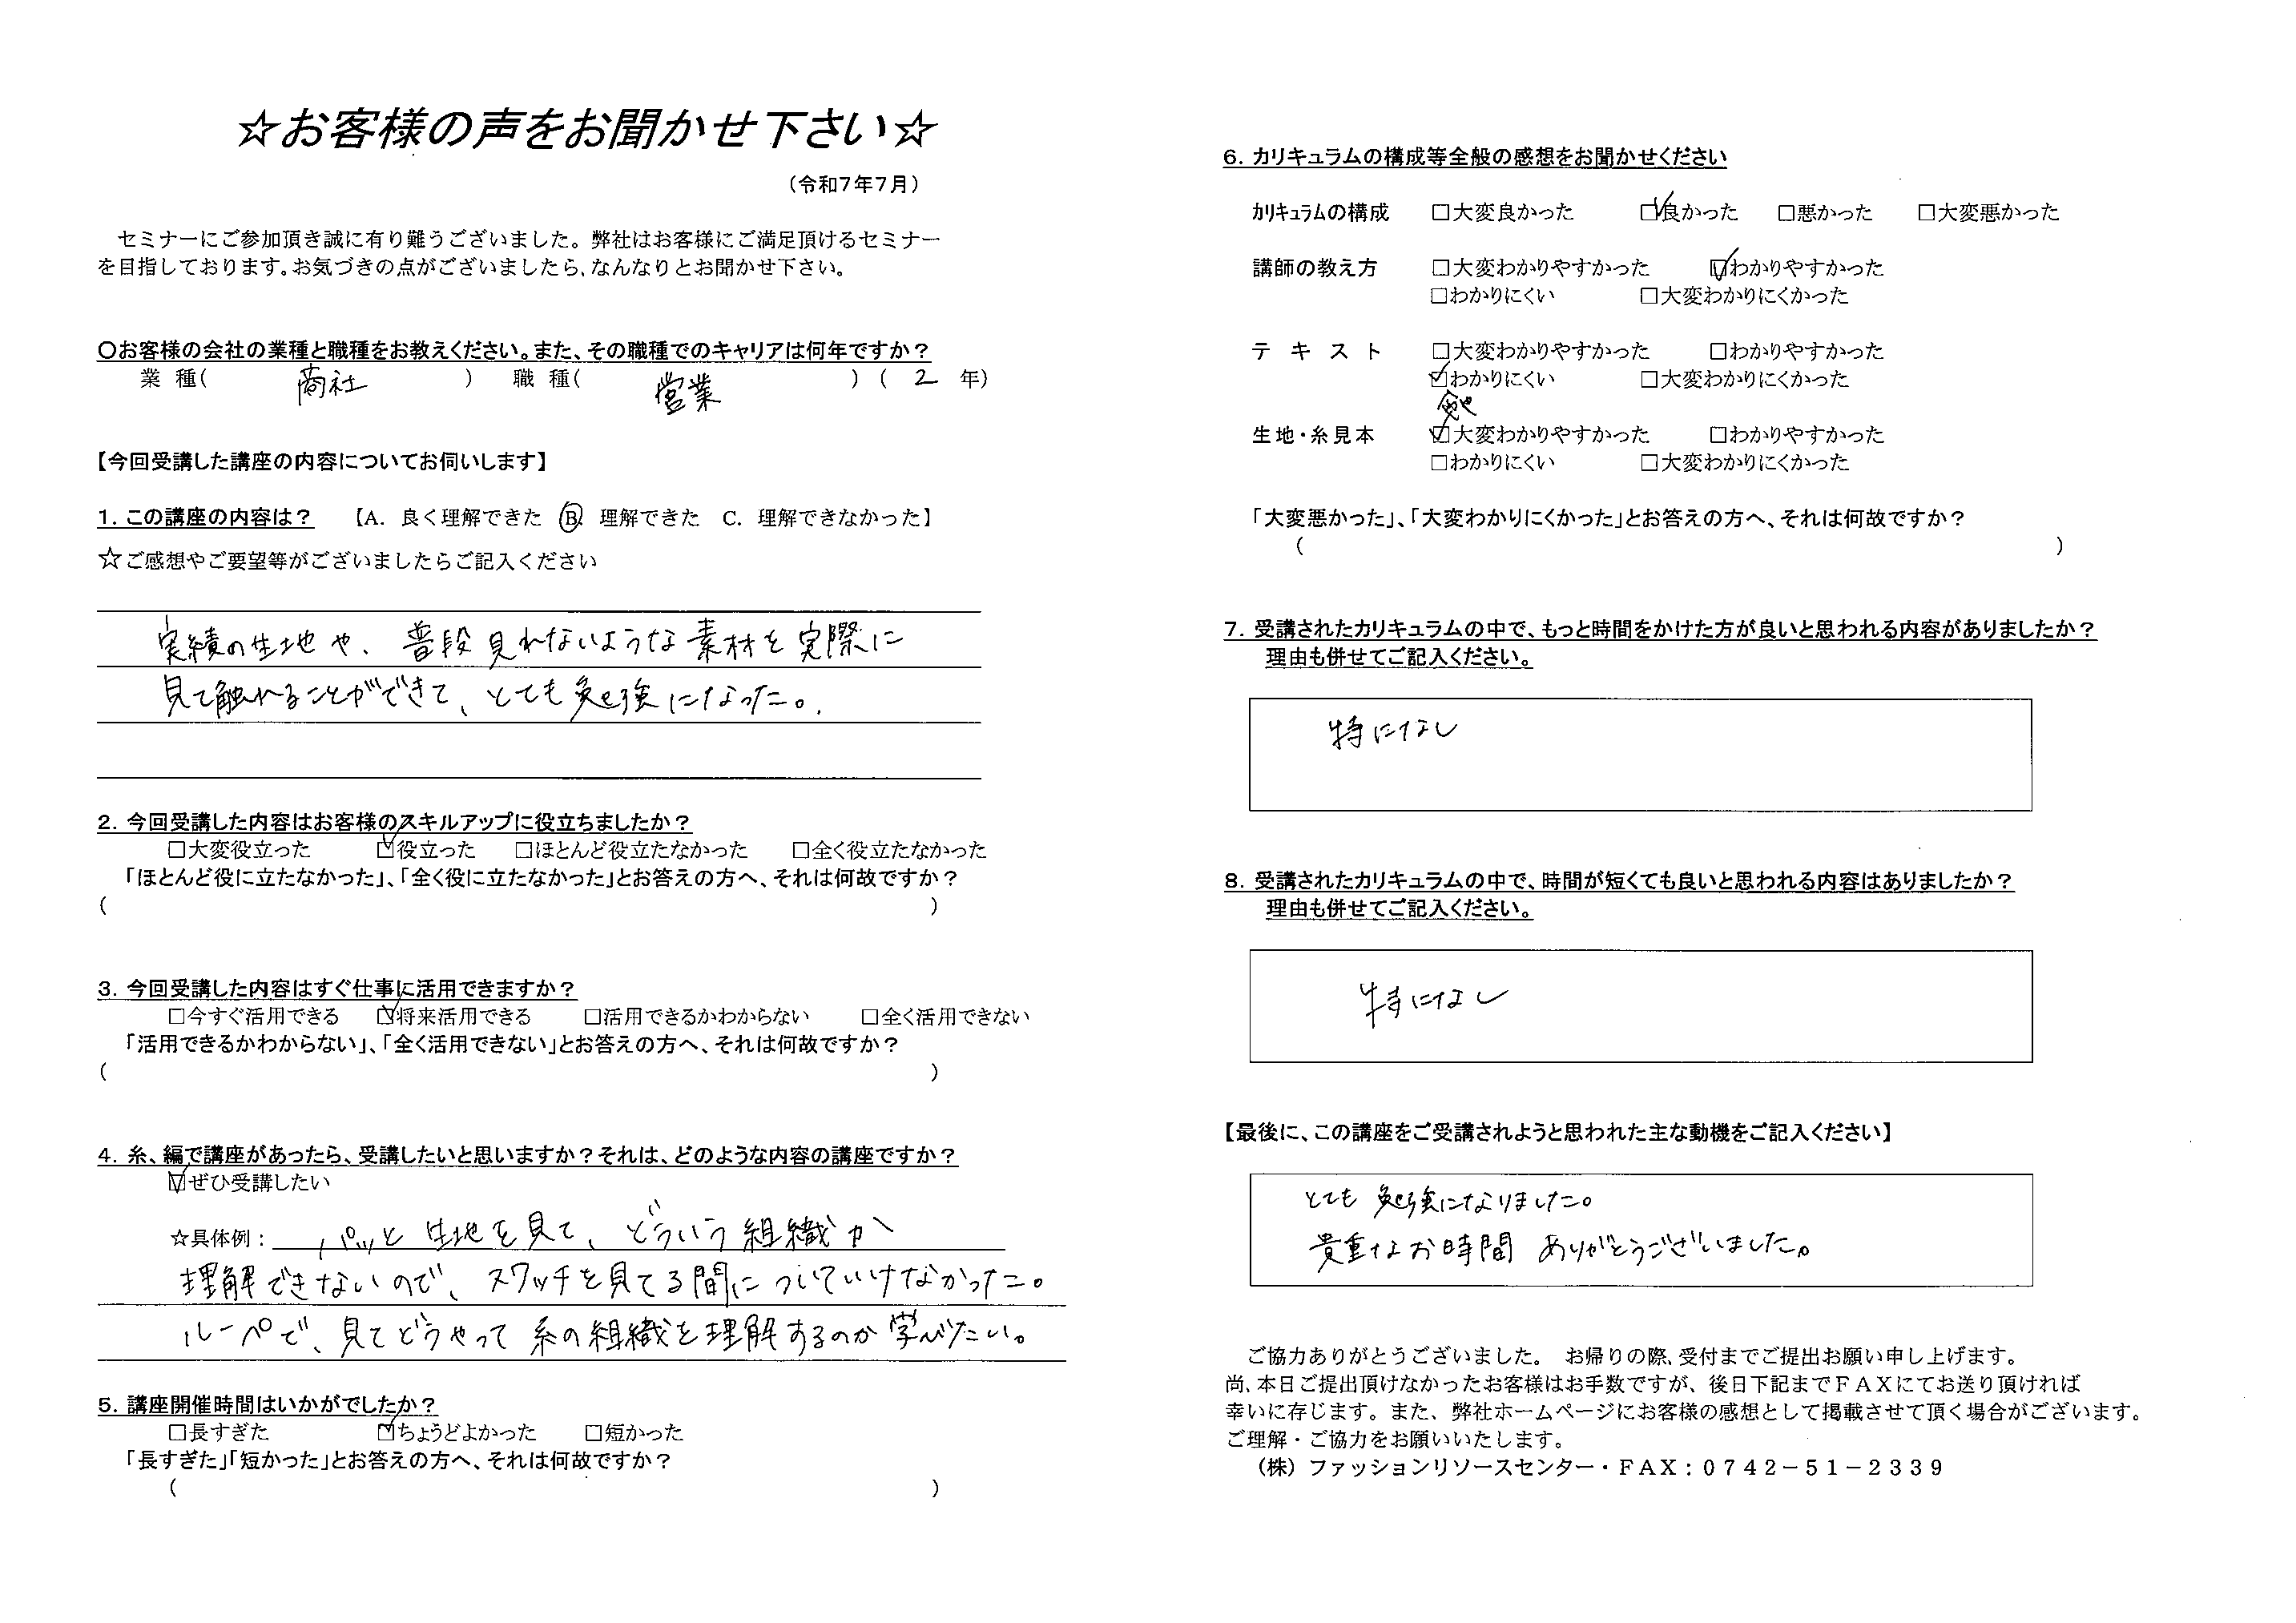 ☆お客様の声をお聞かせ下さい☆
（令和7年7月）
セミナーにご参加頂き誠に有り難うございました。弊社はお客様にご満足頂けるセミナー
を目指しております。お気づきの点がございましたら、なんなりとお聞かせ下さい。
〇お客様の会社の業種と職種をお教えください。また、その職種でのキャリアは何年ですか？
業 種（ 商社 ） 職 種（ 営業 ）（ 2 年）
【今回受講した講座の内容についてお伺いします】
1. この講座の内容は？ 【A. 良く理解できた Ⓑ. 理解できた C. 理解できなかった】
☆ご感想やご要望等がございましたらご記入ください
実績の生地や、普段見れないような素材を実際に
見て触れることができて、とても勉強になった。
2. 今回受講した内容はお客様のスキルアップに役立ちましたか？
□大変役立った ☑役立った □ほとんど役立たなかった □全く役立たなかった
「ほとんど役に立たなかった」、「全く役に立たなかった」とお答えの方へ、それは何故ですか？
（ ）
3. 今回受講した内容はすぐ仕事に活用できますか？
□今すぐ活用できる ☑将来活用できる □活用できるかわからない □全く活用できない
「活用できるかわからない」、「全く活用できない」とお答えの方へ、それは何故ですか？
（ ）
4. 糸、編で講座があったら、受講したいと思いますか？それは、どのような内容の講座ですか？
☑ぜひ受講したい
☆具体例： パッと生地を見て、どういう組織か
理解できないので、スワッチを見てる間についていけなかった。
ルーペで、見てどうやって糸の組織を理解するのか学びたい。
5. 講座開催時間はいかがでしたか？
□長すぎた ☑ちょうどよかった □短かった
「長すぎた」「短かった」とお答えの方へ、それは何故ですか？
（ ）
6. カリキュラムの構成等全般の感想をお聞かせください
カリキュラムの構成 □大変良かった ☑良かった □悪かった □大変悪かった
講師の教え方 □大変わかりやすかった ☑わかりやすかった
□わかりにくい □大変わかりにくかった
テ キ ス ト □大変わかりやすかった □わかりやすかった
☑わかりにくい □大変わかりにくかった
生地・糸見本 ☑大変わかりやすかった □わかりやすかった
□わかりにくい □大変わかりにくかった
「大変悪かった」、「大変わかりにくかった」とお答えの方へ、それは何故ですか？
（ ）
7. 受講されたカリキュラムの中で、もっと時間をかけた方が良いと思われる内容がありましたか？
理由も併せてご記入ください。
特になし
8. 受講されたカリキュラムの中で、時間が短くても良いと思われる内容はありましたか？
理由も併せてご記入ください。
特になし
【最後に、この講座をご受講されようと思われた主な動機をご記入ください】
とても勉強になりました。
貴重なお時間 ありがとうございました。
ご協力ありがとうございました。 お帰りの際、受付までご提出お願い申し上げます。
尚、本日ご提出頂けなかったお客様はお手数ですが、後日下記までＦＡＸにてお送り頂ければ
幸いに存じます。また、弊社ホームページにお客様の感想として掲載させて頂く場合がございます。
ご理解・ご協力をお願いいたします。
（株）ファッションリソースセンター・ＦＡＸ：０７４２－５１－２３３９